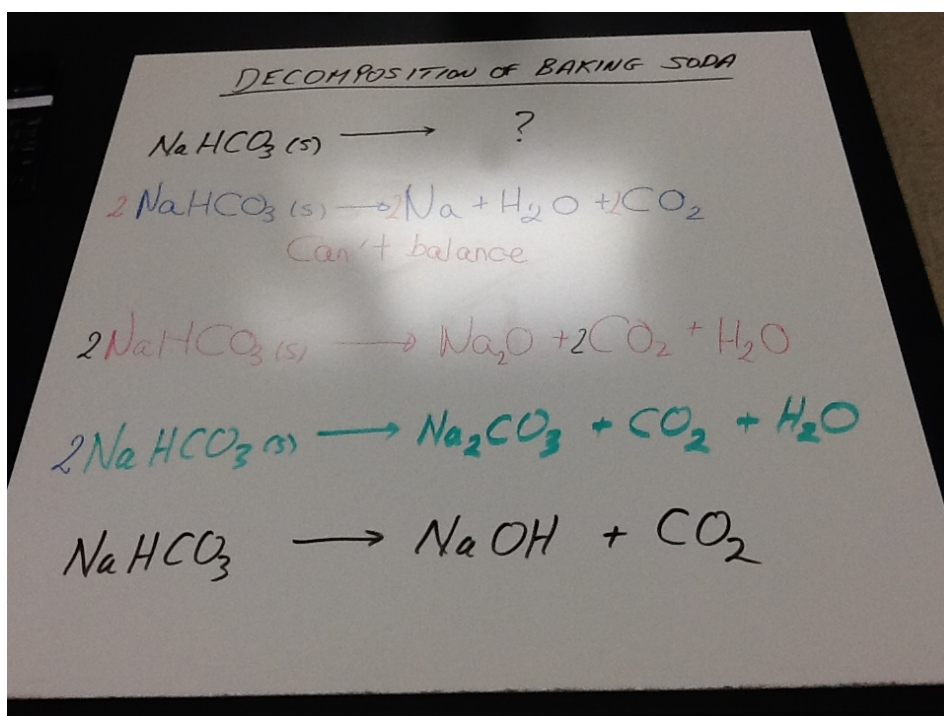 DECOMPOSITION OF BAKING SODA
NaHCO₃ (s) ⟶ ?
2 NaHCO₃ (s) ⟶ 2Na + H₂O + 2CO₂
Can't balance
2NaHCO₃ (s) ⟶ Na₂O + 2CO₂ + H₂O
2NaHCO₃ (s) ⟶ Na₂CO₃ + CO₂ + H₂O
NaHCO₃ ⟶ NaOH + CO₂